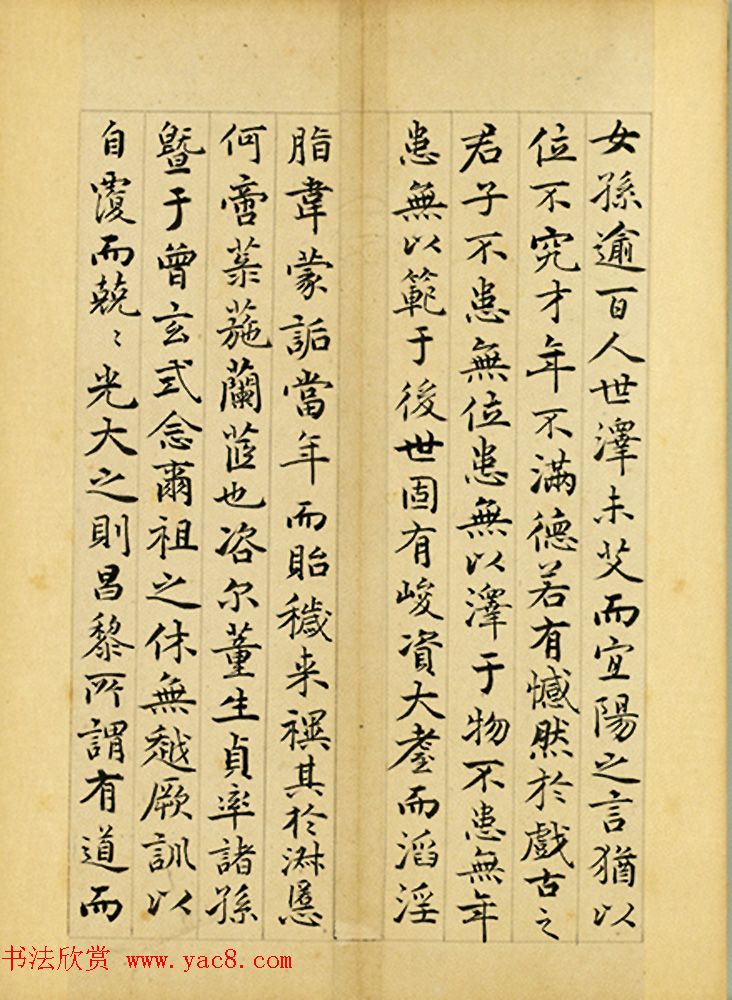 女孫逾百人世澤未艾而宜陽之言猶以
位不究才年不滿德若有憾然於戲古之
君子不患無位患無以澤于物不患無年
患無以範于後世固有峻資大耋而滔淫
脂韋蒙詬當年而貽穢来禩其於淋慝
何啻菉葹蘭茝也咨尔董生貞率諸孫
暨于曾玄式念爾祖之休無越厥訓以
自覆而兢〻光大之則昌黎所謂有道而
书法欣赏 www.yac8.com